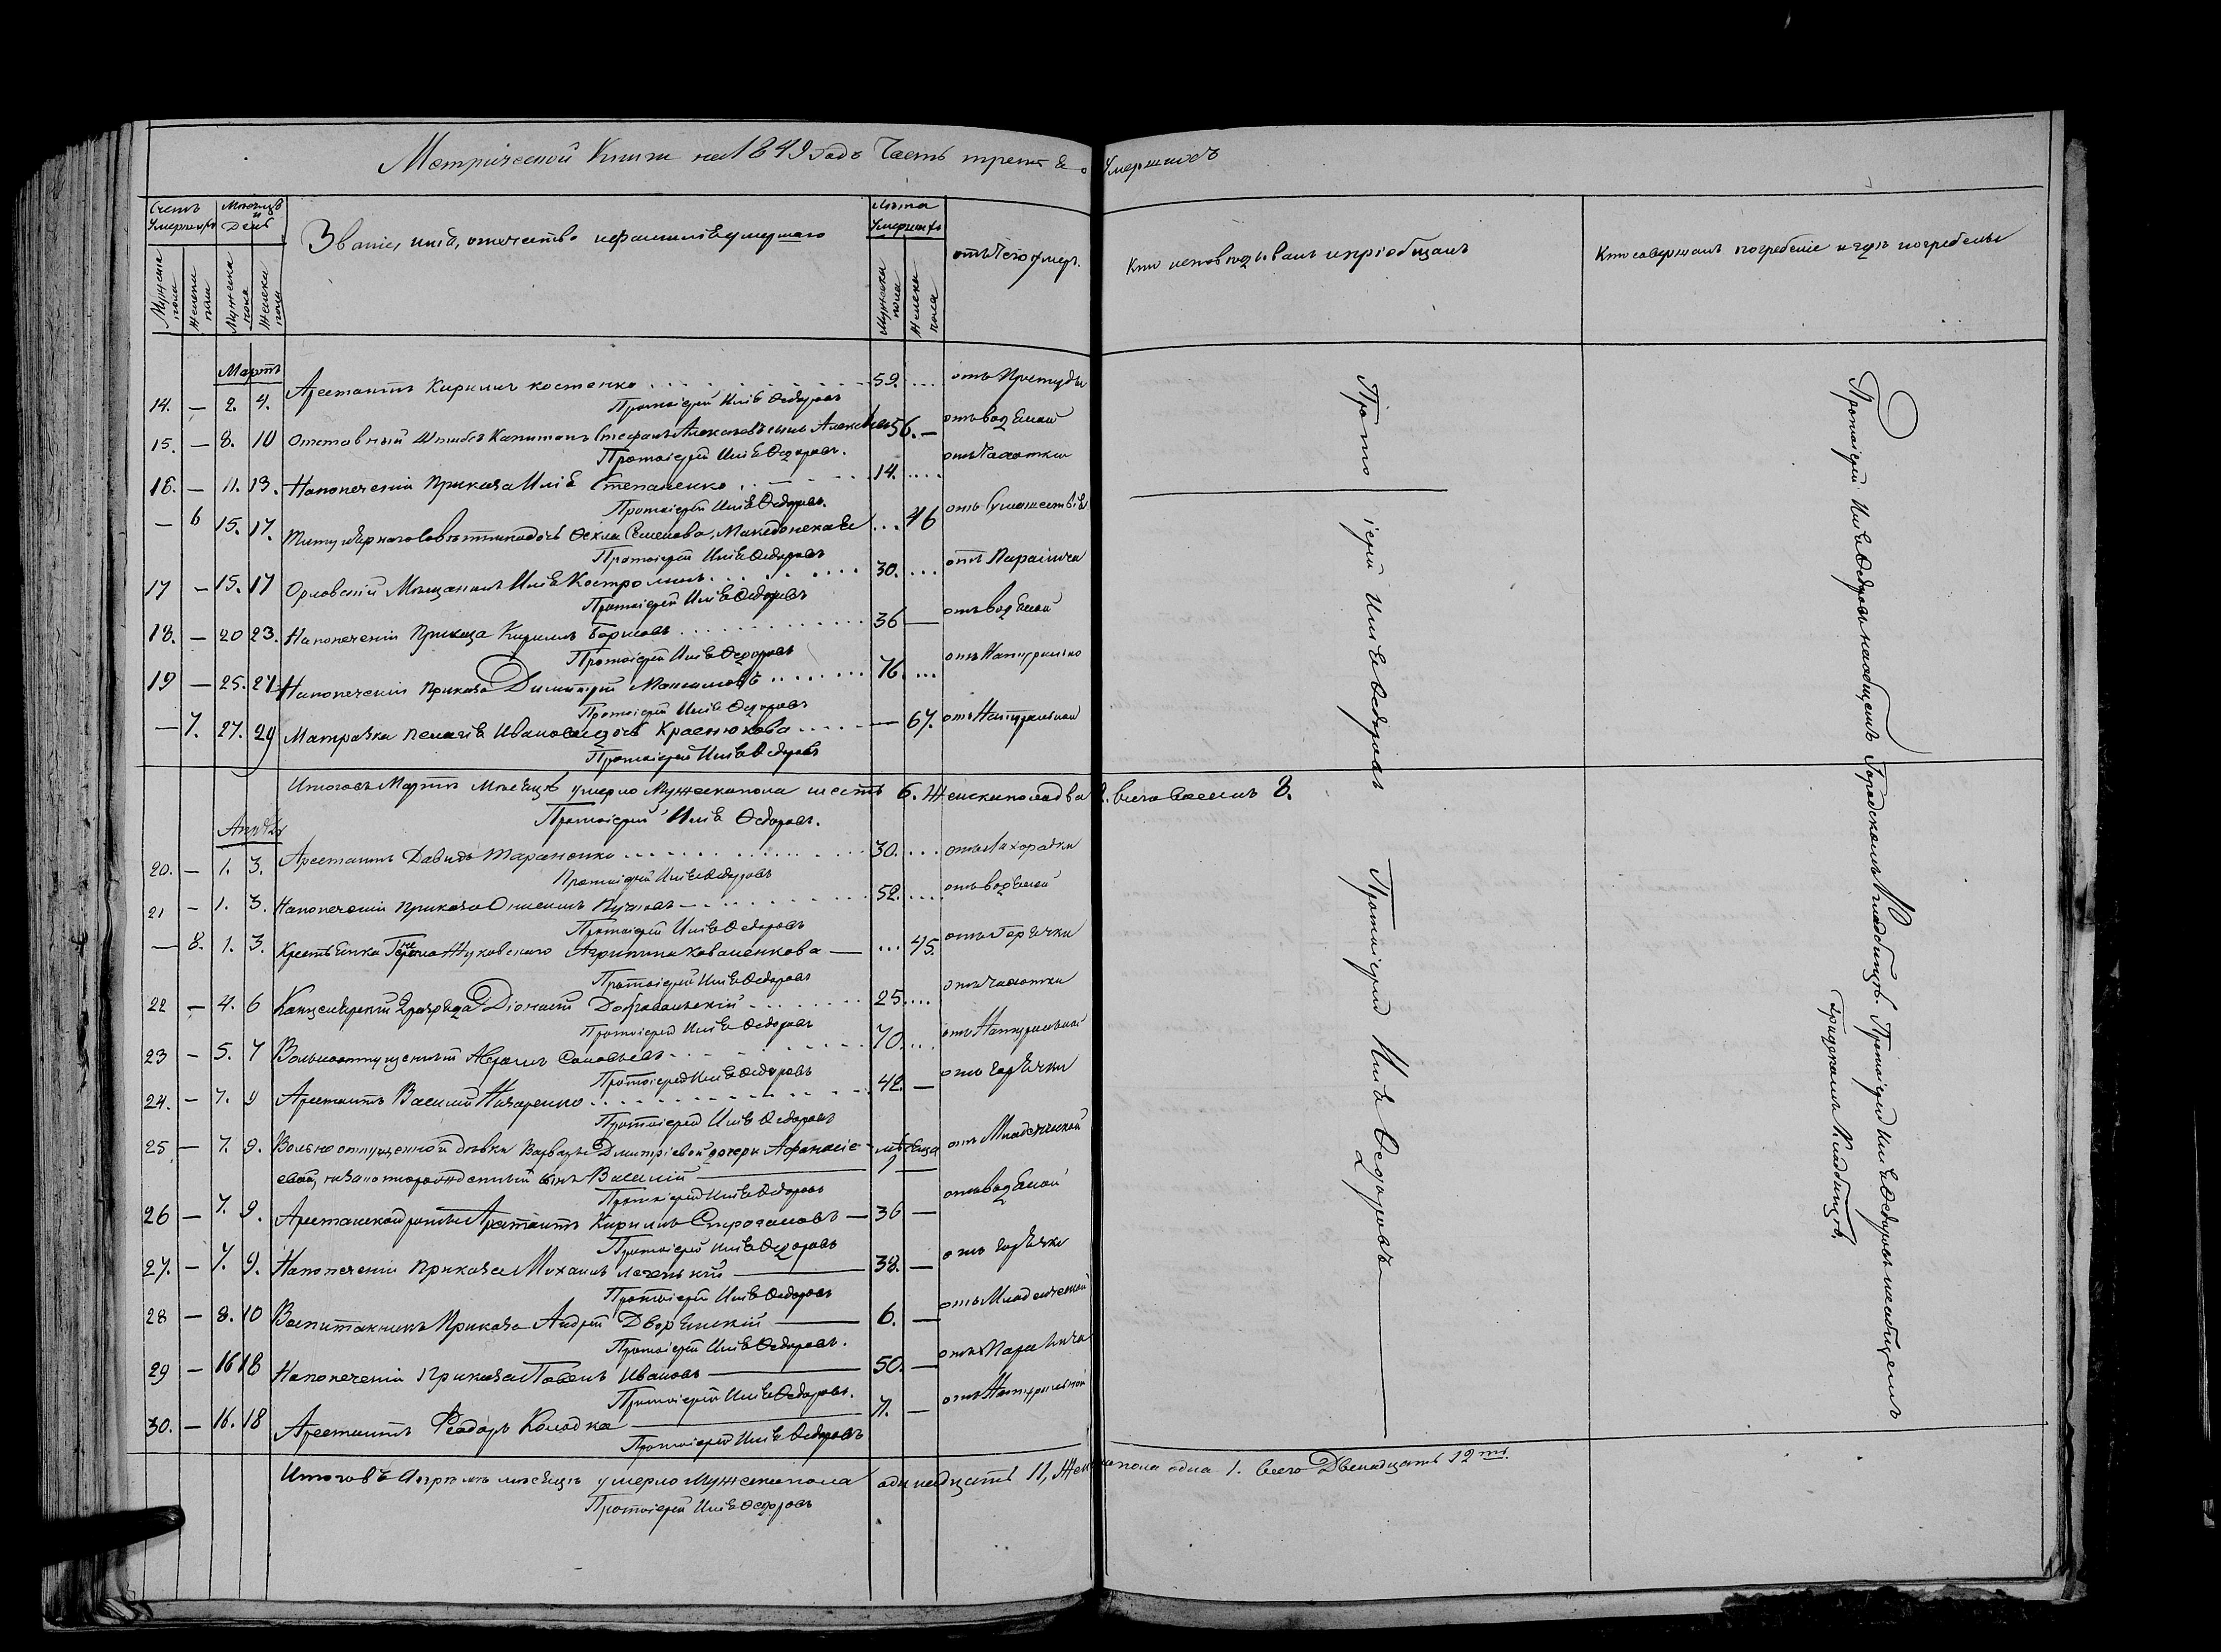 Метрической Книги на 1849 Годъ Часть третья о Умершихъ
Счетъ Умершихъ
Мѣсяцъ и День
Званіе, имя, отечество и фамилія умершаго
Лѣта Умершихъ
отъ чего умеръ.
Кто исповѣдывалъ и пріобщалъ
Кто совершалъ погребеніе и гдѣ погребены
Мужеска пола
Женска пола
Мужеска пола
Женска пола
Мужеска пола
Женска пола
Мартъ
14. — 2. 4. Арестантъ Кирилъ Костенко 59. отъ Простуды
Протоіерей Илія Ѳедоровъ
15. — 8. 10 Отставный Штабсъ Капитанъ Стефанъ 56. — отъ водяной
Протоіерей Илія Ѳедоровъ.
16. — 11. 13. На попеченіи Приказа Илія Степаненко 14. отъ Чахотки
Протоіерей Илія Ѳедоровъ.
— 6 15. 17. Титулярнаго Совѣтника дочь Ѳекла Семенова, Македонская 46 отъ Сумашествія
Протоіерей Илія Ѳедоровъ
17 — 15. 17 Орловскій Мѣщанинъ Илія Костроминъ 30. отъ Паралича
Протоіерей Илія Ѳедоровъ
18. — 20 23. На попеченіи Приказа Кирилъ Борисовъ 36 — отъ водяной
Протоіерей Илія Ѳедоровъ
19 — 25. 27. На попеченіи Приказа Димитрій Максимовъ 76. отъ Натуральной
Протоіерей Илія Ѳедоровъ
— 7. 27. 29 Матрозка Пелагія Иванова дочь Краснюкова — 67. отъ Натуральной
Протоіерей Илія Ѳедоровъ
Итого въ Мартѣ Мѣсяцѣ умерло Мужеска пола шесть 6. Женска пола два 2. всего восемь 8.
Протоіерей Илія Ѳедоровъ.
Апрѣль
20. — 1. 3. Арестантъ Давидъ Тараненко 30. отъ Лихорадки
Протоіерей Илія Ѳедоровъ
21 — 1. 3. На попеченіи Приказа Онисимъ 52. отъ водяной
Протоіерей Илія Ѳедоровъ
— 8. 1. 3. Крестьянка Жуковскаго Агрипина Коваленкова — 45. отъ Горячки
Протоіерей Илія Ѳедоровъ
22 — 4. 6 Канцелярскій Діонисій 25. отъ чахотки
Протоіерей Илія Ѳедоровъ
23 — 5. 7 Вольноотпущенный Авраамъ Соловьевъ 70. отъ Натуральной
Протоіерей Илія Ѳедоровъ
24. — 7. 9 Арестантъ Василій Назаренко 42. — отъ горячки
Протоіерей Илія Ѳедоровъ
25 — 7. 9. Вольноотпущенной дѣвки Варвары Дмитріевой дочери Афанасіе- мѣсяца отъ Младенческой
евой, незаконнорожденный сынъ Василій —
Протоіерей Илія Ѳедоровъ
26 — 7. 9. Арестанской роты Арестантъ Кирилъ Строгановъ — 36 — отъ водяной
Протоіерей Илія Ѳедоровъ
27. — 7. 9. На попеченіи Приказа Михаилъ 38. — отъ горячки
Протоіерей Илія Ѳедоровъ
28 — 8. 10 Воспитанникъ Приказа Андрей Дворянскій — 6. — отъ Младенческой
Протоіерей Илія Ѳедоровъ.
29 — 16 18 На попеченіи Приказа Павелъ Ивановъ — 50. — отъ Паралича
Протоіерей Илія Ѳедоровъ.
30. — 16. 18 Арестантъ Ѳеодоръ Колодка 71. — отъ Натуральной
Протоіерей Илія Ѳедоровъ
Итого въ Апрѣлѣ мѣсяцѣ умерло Мужеска пола одинадцать 11, Женска пола одна 1. всего Двенадцать 12ть.
Протоіерей Илія Ѳедоровъ
Протоіерей Илія Ѳедоровъ
Протоіерей Илія Ѳедоровъ
Протоіерей Илія Ѳедоровъ на общемъ Городскомъ Кладбищѣ. Протоіерей Илія Ѳедоровъ на общемъ
Градскомъ Кладбищѣ.